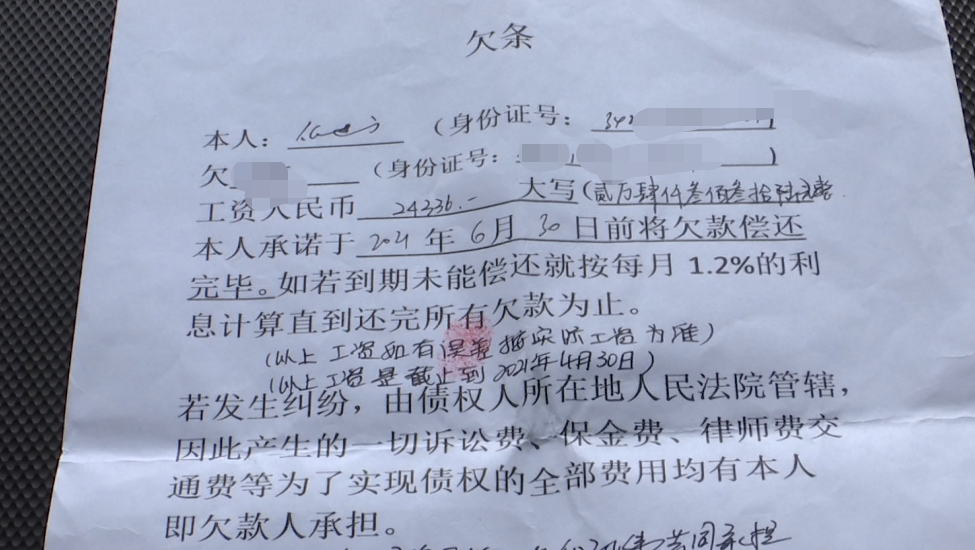 欠条
本人： （身份证号：34
欠 （身份证号： ）
工资人民币 24336.- 大写（贰万肆仟叁佰叁拾陆元整
本人承诺于 2021 年 6 月 30 日前将欠款偿还
完毕。如若到期未能偿还就按每月 1.2%的利
息计算直到还完所有欠款为止。
（以上工资如有误差按实际工资为准）
（以上工资是截止到2021年4月30日）
若发生纠纷，由债权人所在地人民法院管辖，
因此产生的一切诉讼费、保金费、律师费交
通费等为了实现债权的全部费用均有本人
即欠款人承担。
共同承担